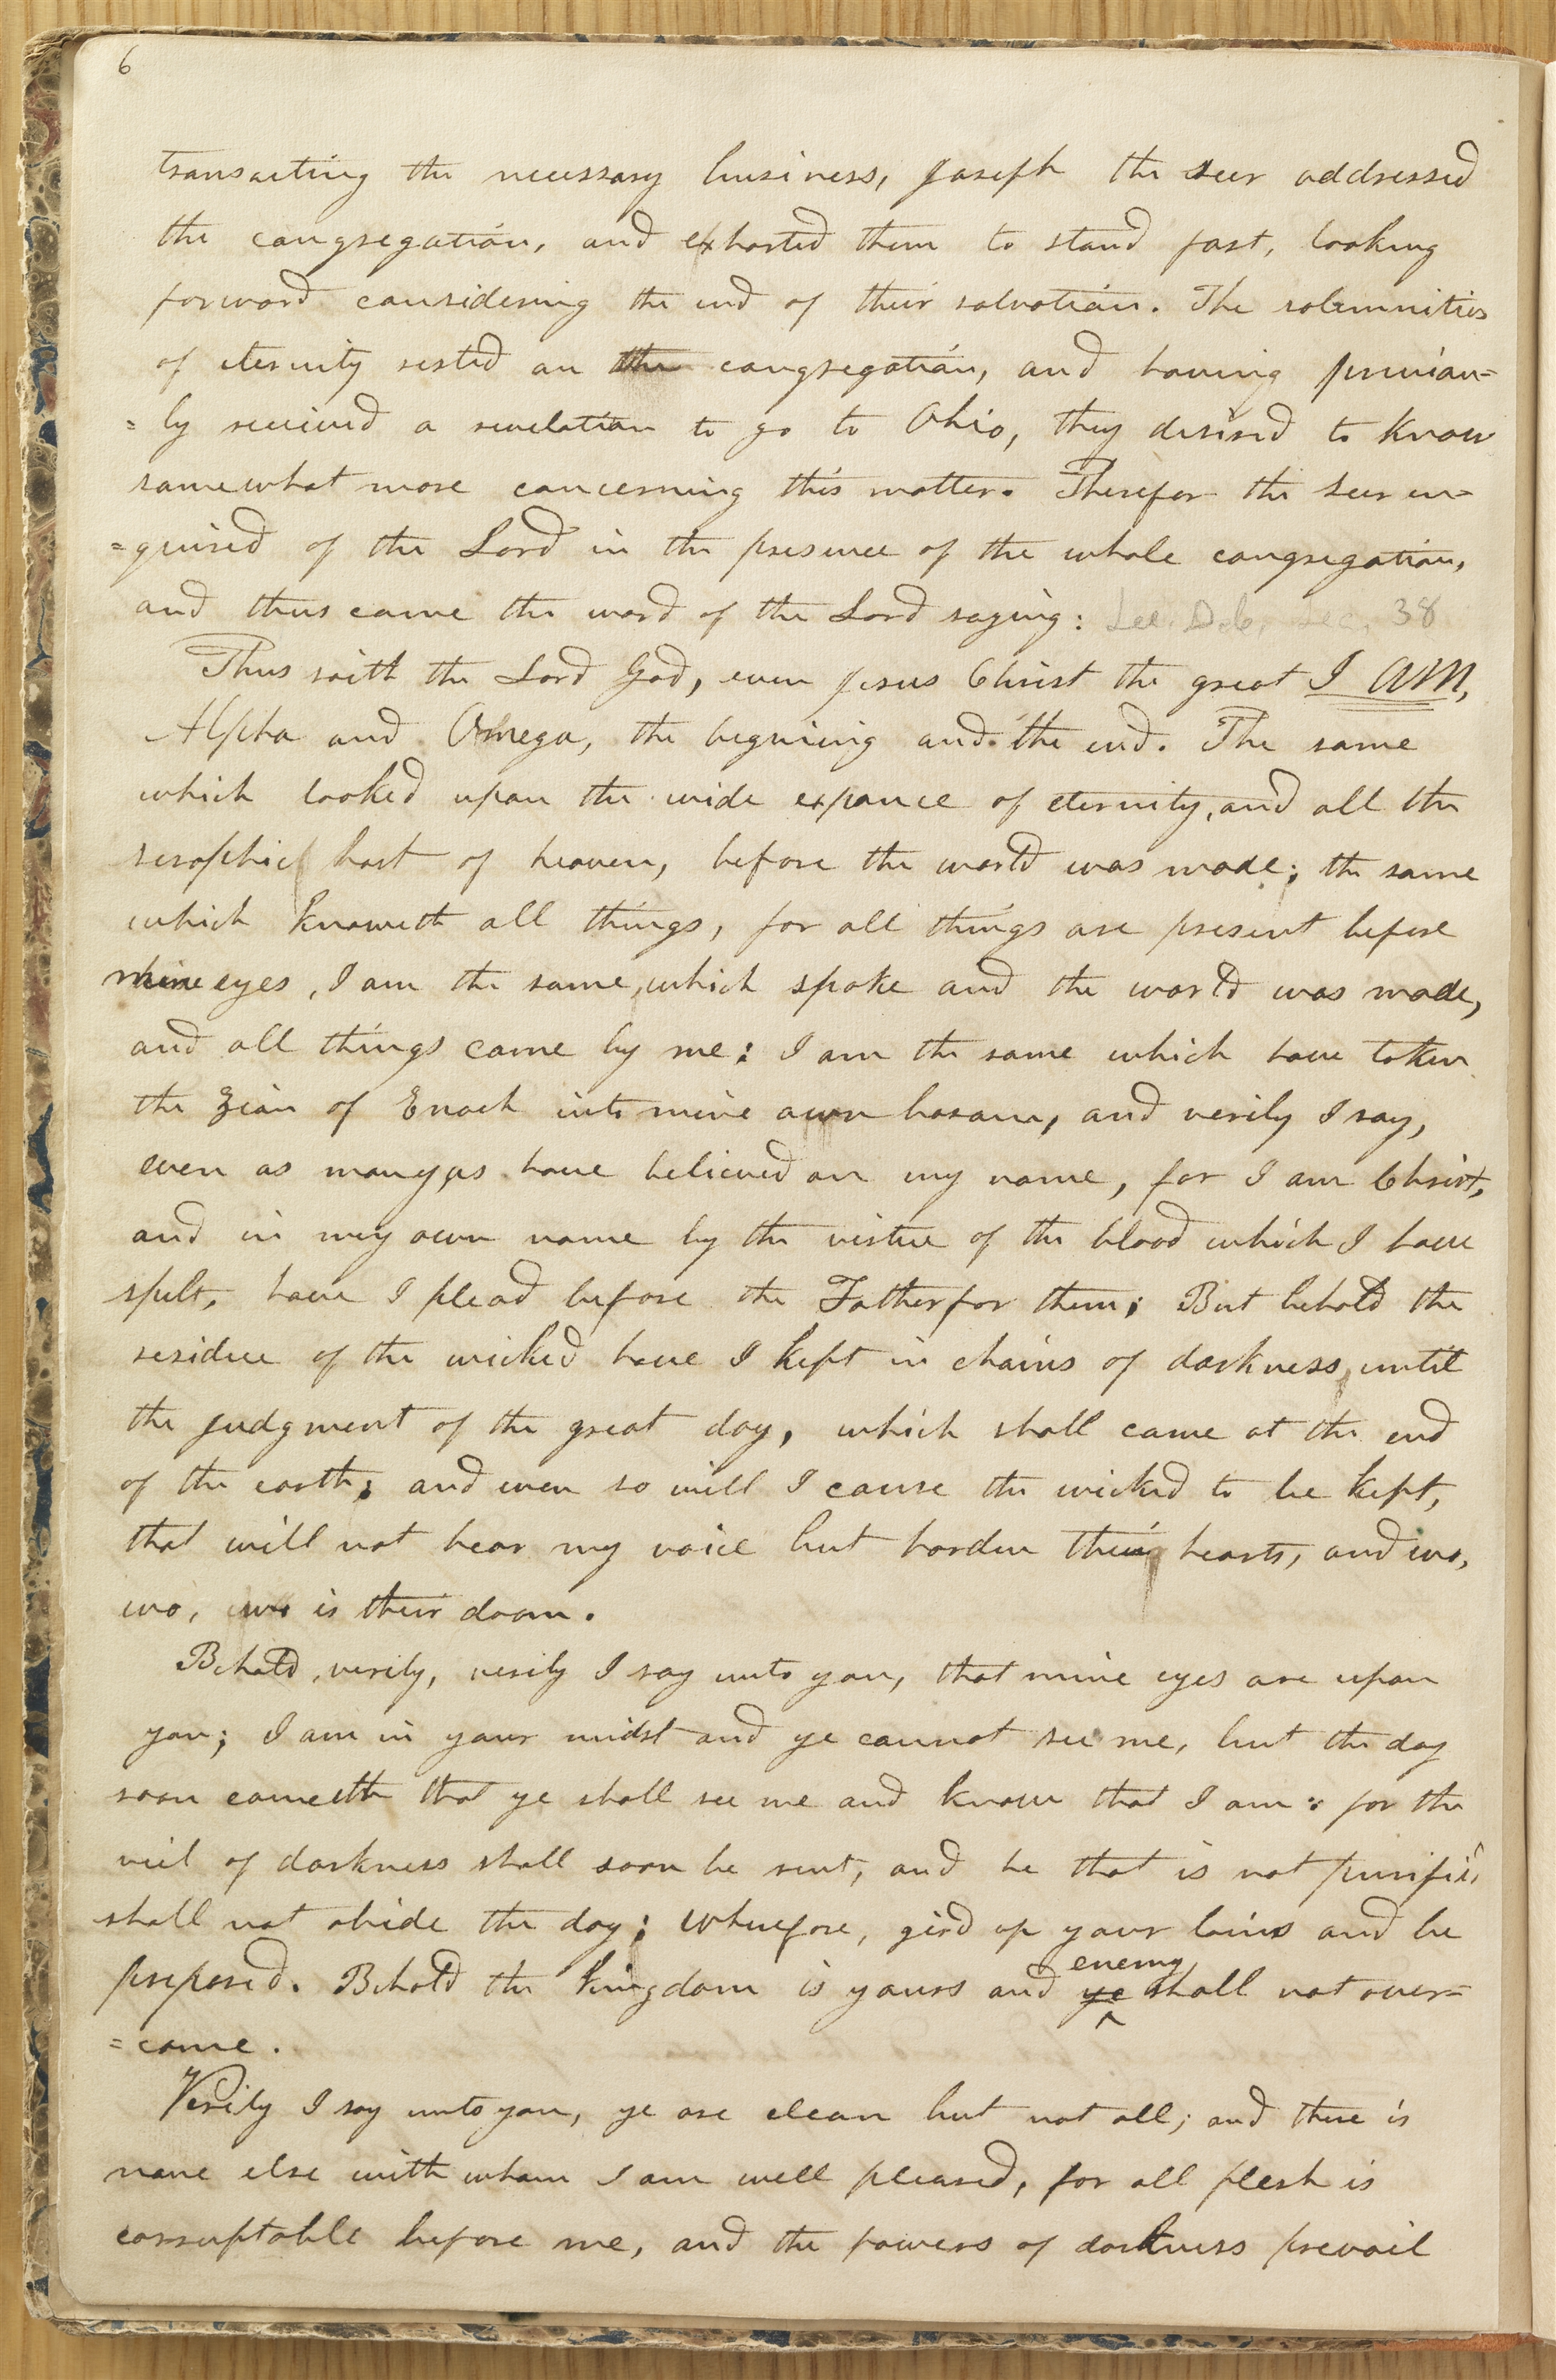 6
transacting the necessary business, Joseph the seer addressed
the congregation, and exhorted them to stand fast, looking
forward considering the end of their salvation. The solemnities
of eternity rested on the congregation, and having previous=
=ly received a revelation to go to Ohio, they desired to know
somewhat more concerning this matter. Therefor the seer en=
=quired of the Lord in the presence of the whole congregation,
and thus came the word of the Lord saying: See. D.&c. Sec. 38
Thus saith the Lord God, even Jesus Christ the great I AM,
Alpha and Omega, the begining and the end. The same
which looked upon the wide expance of eternity, and all the
seraphic host of heaven, before the world was made; the same
which knoweth all things, for all things are present before
mine eyes, I am the same, which spake and the world was made,
and all things came by me: I am the same which have taken
the Zion of Enoch into mine own bosom, and verily I say,
even as many as have believed on my name, for I am Christ,
and in my own name by the virtue of the blood which I have
spilt, have I plead before the Father for them; But behold the
residue of the wicked have I kept in chains of darkness, until
the judgment of the great day, which shall come at the end
of the earth; and even so will I cause the wicked to be kept,
that will not hear my voice but harden their hearts, and wo,
wo, wo is their doom.
Behold, verily, verily I say unto you, that mine eyes are upon
you; I am in your midst and ye cannot see me, but the day
soon cometh that ye shall see me and know that I am: for the
veil of darkness shall soon be rent, and he that is not purified
shall not abide the day; Wherefore, gird up your loins and be
prepared. Behold the kingdom is yours and ye enemy shall not over=
=come.
Verily I say unto you, ye are clean but not all; and there is
none else with whom I am well pleased, for all flesh is
corruptable before me, and the powers of darkness prevail